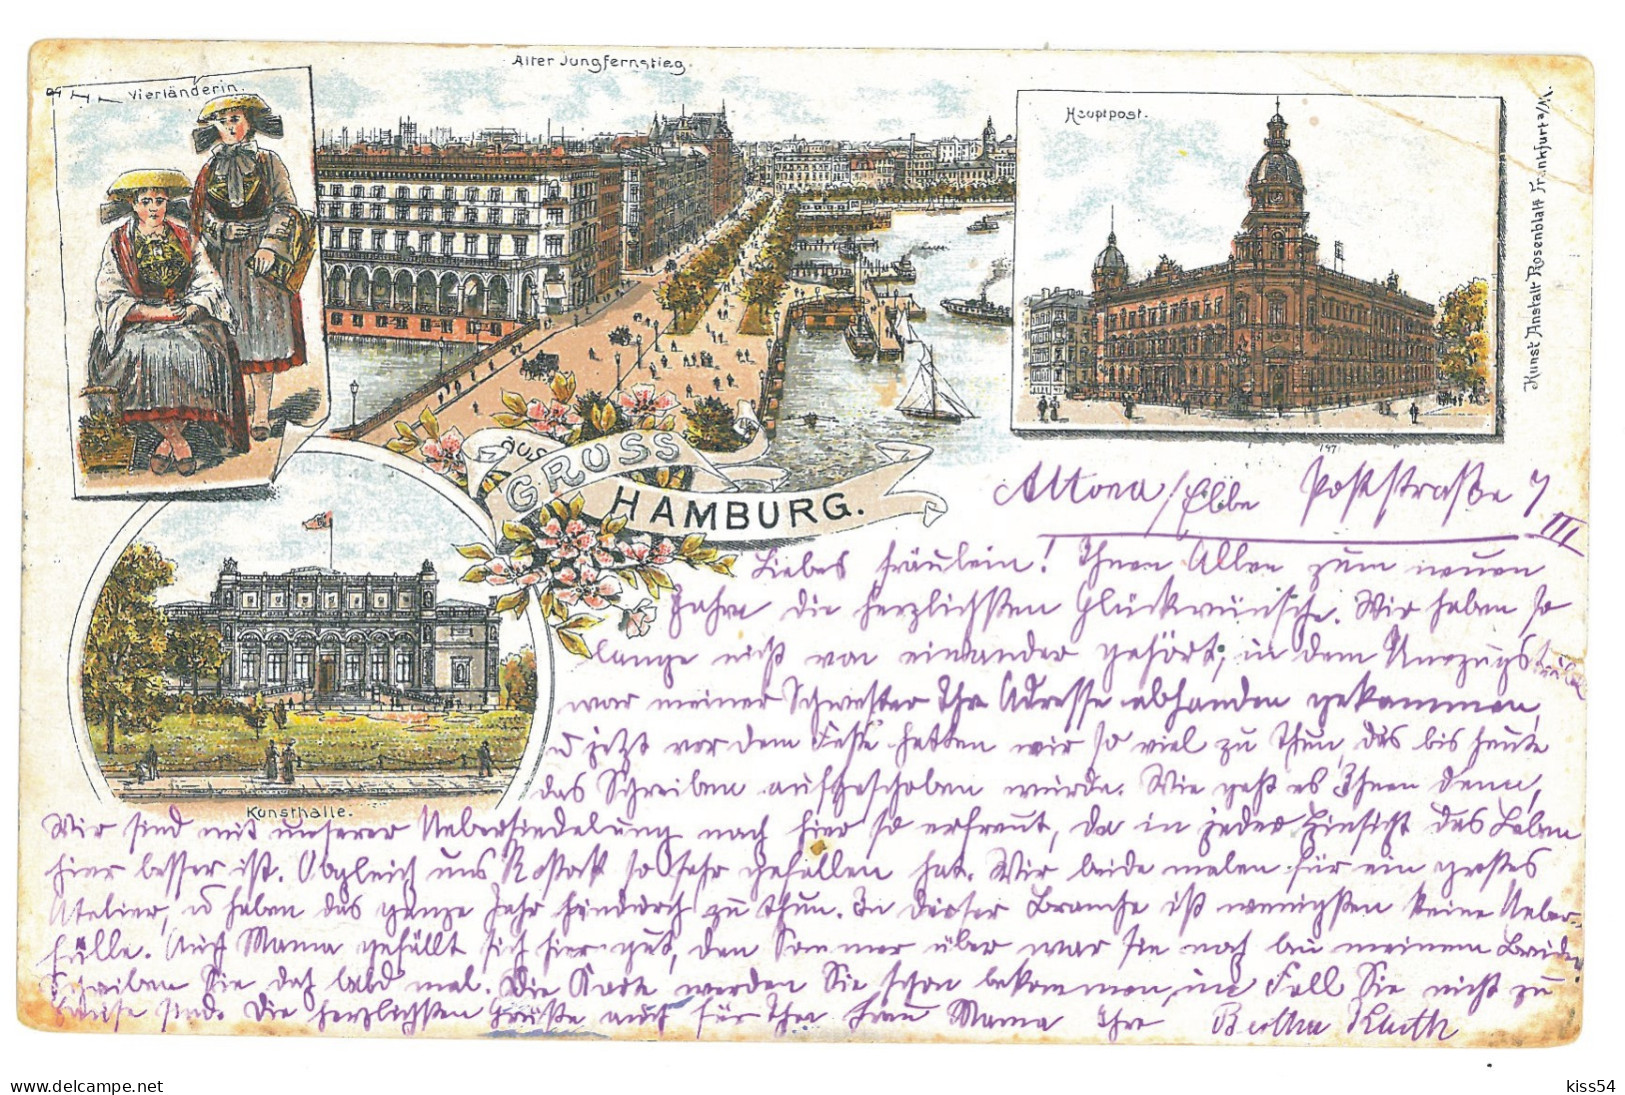 Vierländerin.
Alter Jungfernstieg.
Hauptpost.
Kunst Anstalt Rosenblatt Frankfurt a/M.
197
GRUSS
AUS
HAMBURG.
Kunsthalle.
Altona/Elbe Poststraße 7 III
Liebes Fräulein! Ihnen Allen zum neuen
Jahre die herzlichsten Glückwünsche. Wir haben so
lange nichts von einander gehört, in dem Umzugs
war meiner Schwester Ihre Adresse abhanden gekommen,
u jetzt vor dem Feste hatten wir so viel zu thun, das bis heute
das Schreiben aufgeschoben wurde. Wie geht es Ihnen denn,
Wir sind mit unserer Uebersiedelung nach hier so erfreut, da in jeder Hinsicht das Leben
hier besser ist. Obgleich uns Rostock so sehr gefallen hat. Wir beide malen für ein großes
Atelier, u haben das ganze Jahr hindurch zu thun. In dieser Branche ist wenigsten keine Ueber-
fülle. Auch Mama gefällt sich hier gut, den Sommer über war sie noch bei meinem Bruder
Schreiben Sie doch bald mal. Die Karte werden Sie schon bekommen, im Fall Sie nicht zu
Hause sind. Die herzlichsten Grüße auch für Ihre Frau Mama Ihre Bertha Kluth
delcampe.net
kiss54